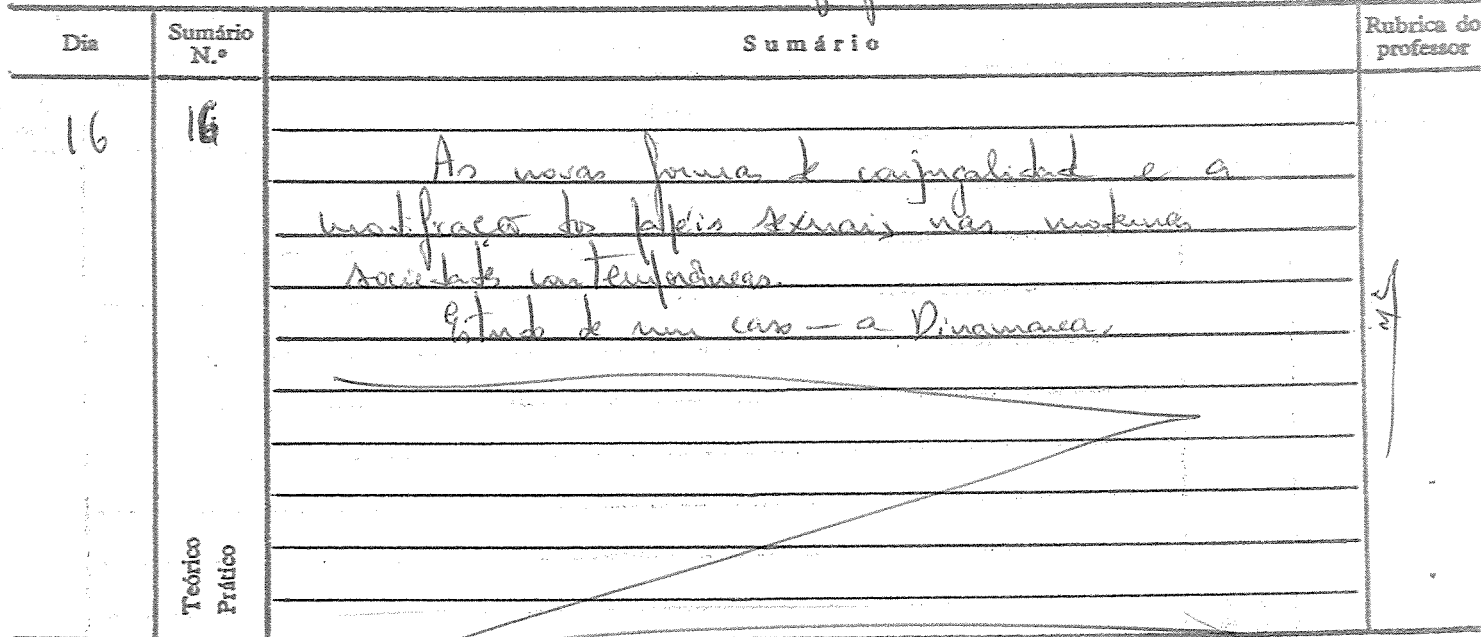 Dia
Sumário N.º
Sumário
Rubrica do professor
16
16
As novas formas de conjugalidade e a
modificação dos papéis sexuais nas modernas
sociedades contemporâneas.
Estudo de um caso — a Dinamarca.
Teórico
Prático